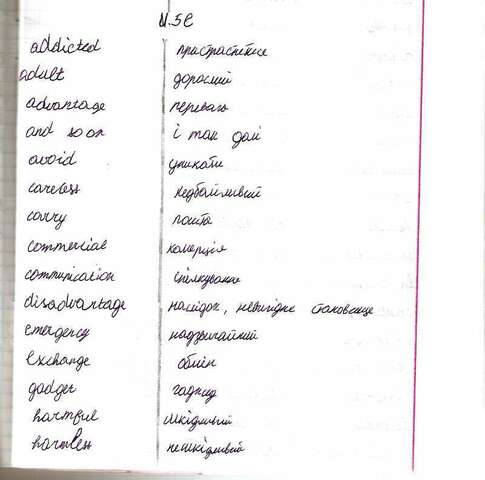 U.5C
addicted пристраститися
adult дорослий
advantage перевага
and so on і так далі
avoid уникати
careless недбайливий
carry
commercial комерція
communication спілкування
disadvantage невигідне становище
emergency надзвичайний
exchange обмін
gadget гаджет
harmful шкідливий
harmless нешкідливий